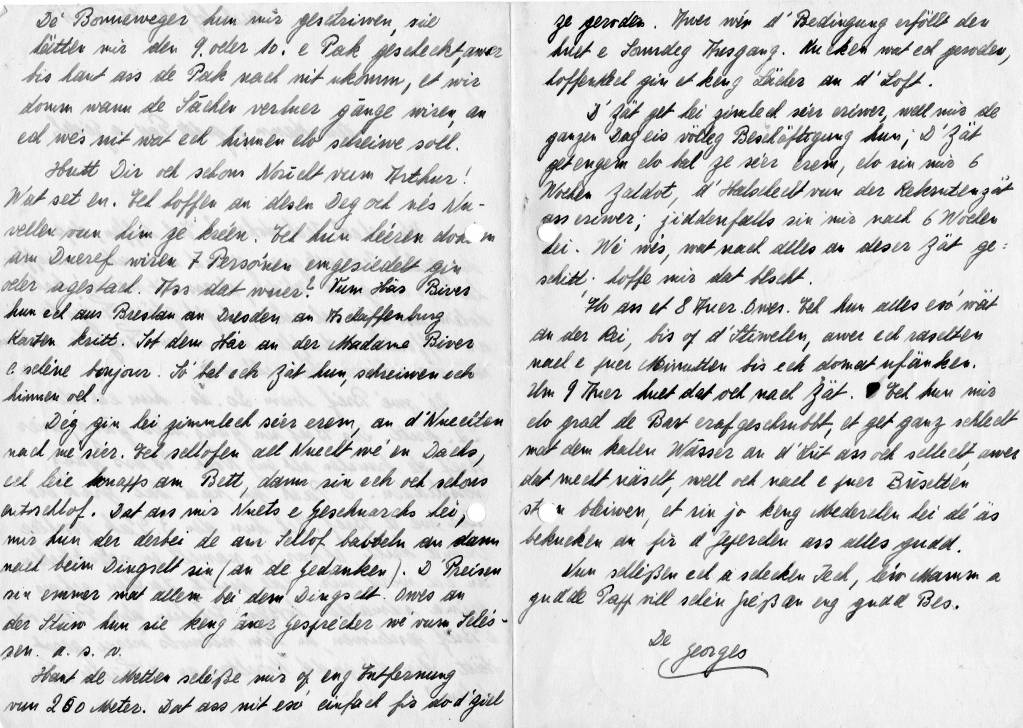 Dé Bonneweger hun mir geschriwen, sie
hätten mir den 9. oder 10. e Pak gescheckt, awer
bis haut ass de Pak nach nit ukomm, et wir
domm wann de Sächen verluer gänge wiren, an
ech wés nit wat ech hinnen elo schreiwe soll.
Hutt Dir och schons Noricht vum Arthur?
Wat set en. Ech hoffen an désen Deg och nés Nu-
vellen vun him ze kréen. Ech hun héieren do
am Dueref wiren 7 Persónen emgesiedelt gin
oder agestach. Ass dat wuer? Vum Här Biver
hun ech aus Breslau an Dresden an Aschaffenburg
Karten kritt. Sot dem Här an der Madame Biver
e schéne bonjour. So' bal ech Zät hun, schreiwen ech
hinnen och.
Dég gin hei zimmlech séier erem, an d'Nuechten
nach mé séier. Ech schlofen all Nuecht wé en Dachs,
ech leie knapps am Bett, dann sin ech och schons
entschlof. Dat ass mir Nuets e Geschnarchs hei,
mir hun der derbei de am Schlof babbeln an dann
nach beim Dingscht sin (an de Gedanken). D'Preisen
sin emmer mat allem bei dem Dingscht. Owes an
der Stuw hun sie keng äner Gesprécher wé vum Schés-
sen. a. s. v.
Haut de Metten schéße mir of eng Entfernung
vun 200 Meter. Dat ass nit eso' einfach fir do d'Ziel
ze geroden. Awer wén d'Bedingung erföllt den
huet e Sonndeg Ausgang. Kucken wat ech geroden,
hoffentlech gin et keng Lächer an d'Loft.
D'Zät get hei zimlech séier eriwer, well mir de
ganzen Dag eis völleg Beschäftegung hun; D'Zät
get engem elo bal ze séier erem, elo sin mir 6
Wochen Zaldot, d'Halschecht vun der Rekrutenzät
ass eriwer; jiddenfalls sin mir nach 6 Wochen
hei. Wé wés, wat nach alles an déser Zät ge=
schitt. hoffe mir dat bescht.
Elo ass et 8 Auer Owes. Ech hun alles eso' wät
an der Rei, bis of d'Stiwelen, awer ech raschten
nach e puer Minutten bis ech domat ufänken.
Um 9 Auer huet dat och nach Zät. Ech hun mir
elo grad de Bart erafgeschrubbt, et get ganz schlecht
mat dem kalen Wässer an d'Licht ass och schlecht, awer
dat mecht näischt, well och nach e puer Bischten
bleiwen, et sin jo keng Mederchen hei dé äs
bekucken an fir d' ass alles gudd.
Nun schléßen ech a schecken Iech, léiw Mamm a
gudde Papp vill schéin Gréiß an eng gudd Bes.
De
Georges